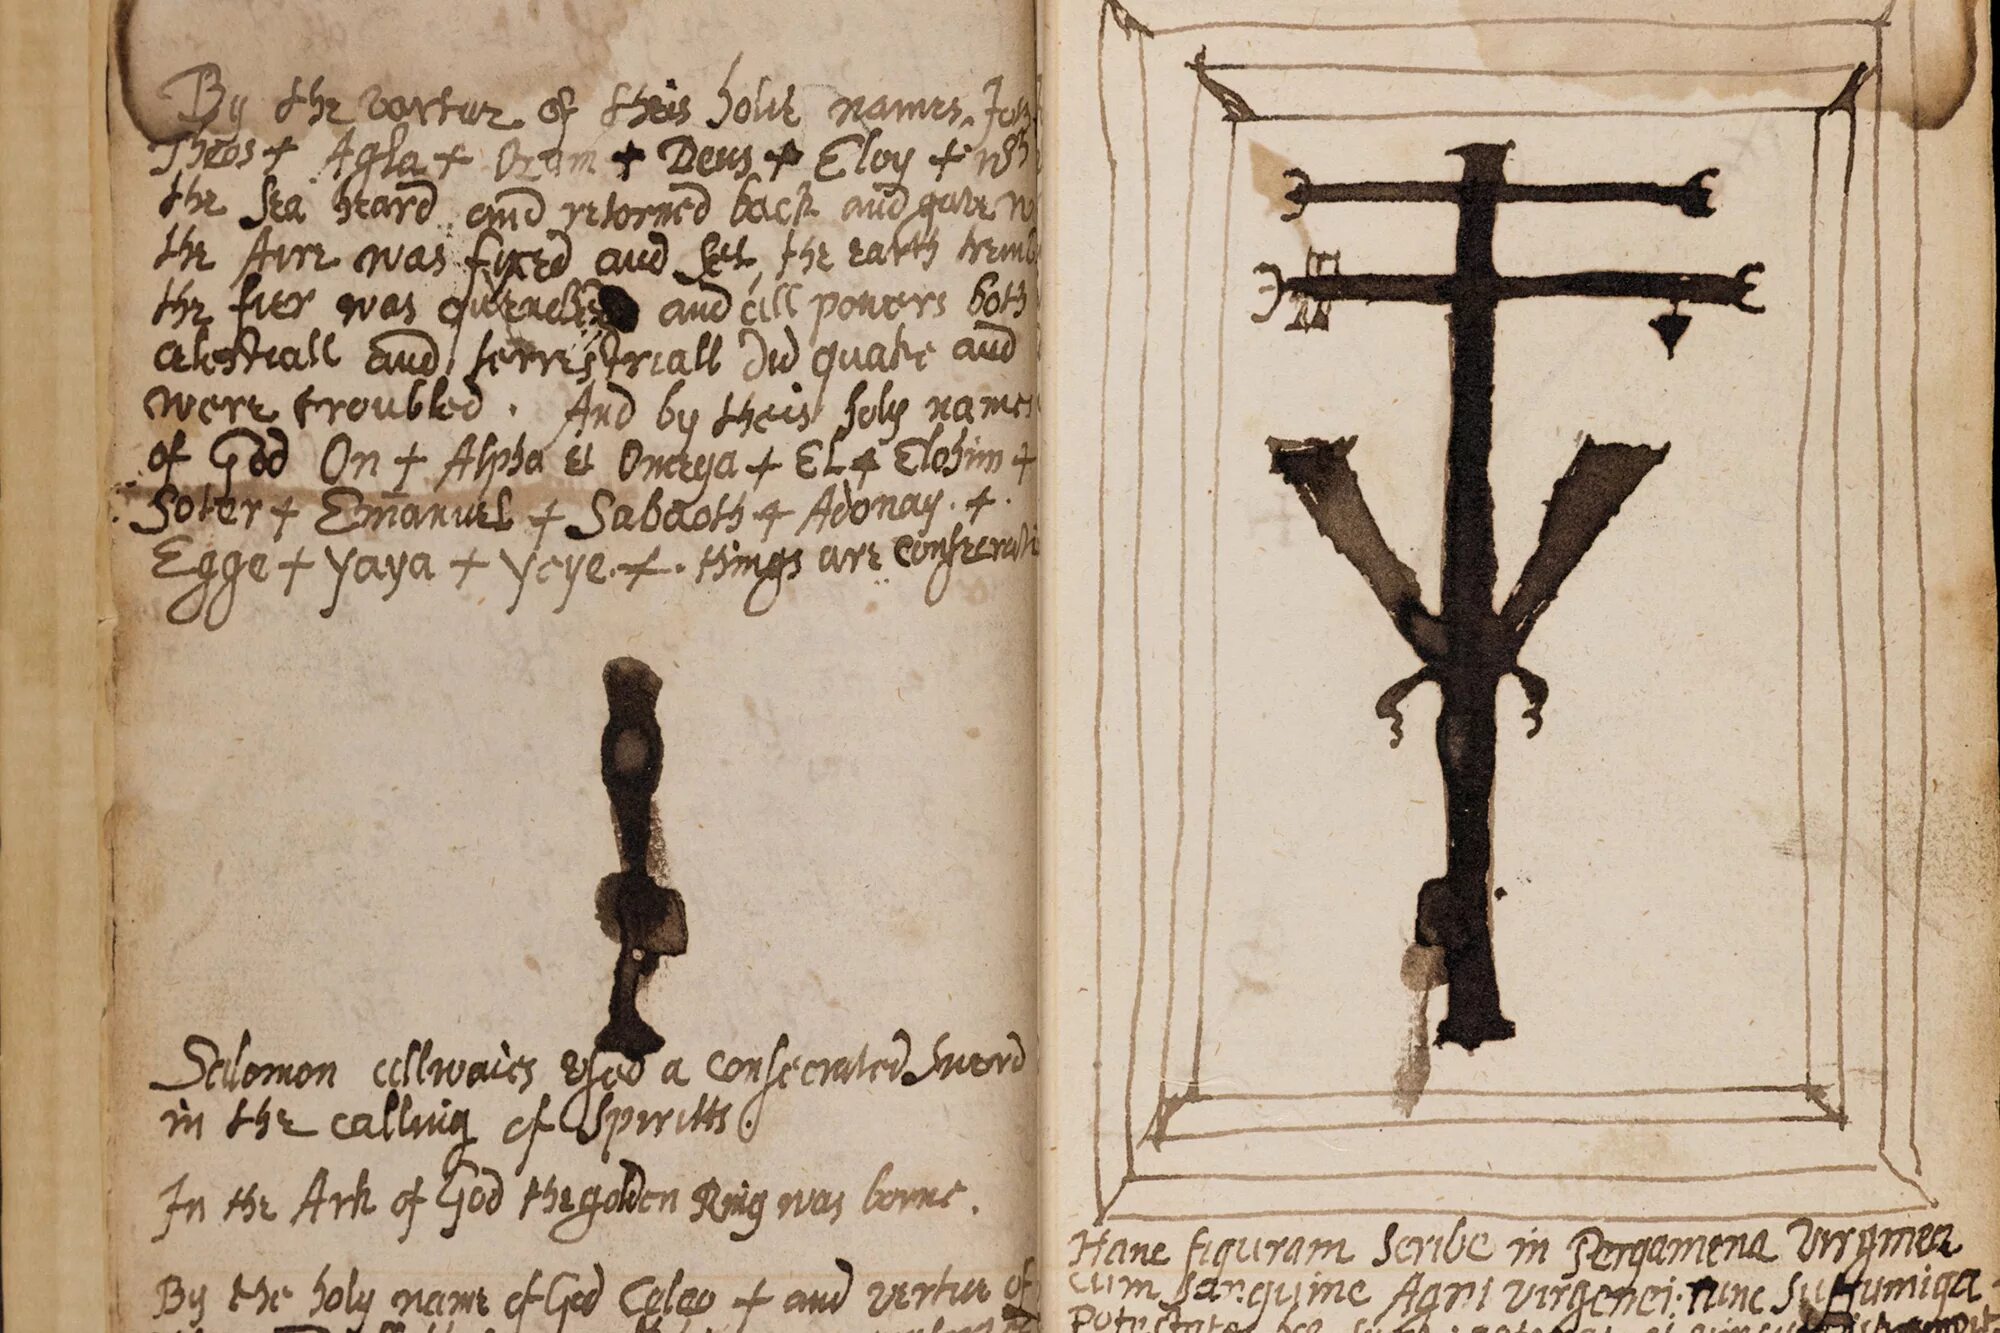 By the vertue of theis holie names
Theos + Agla + Deus + Eloy +
the Sea heard and retorned back and gave
the Aire was fixed and Set, the earth
the fier was and all powers both
celestiall and terrestriall did quake and
were troubled. And by theis holy names
of God On + Alpha et Omega + EL + Elohim +
Soter + Emanuel + Sabaoth + Adonay. +.
Egge + yaya + yeye. +. things are
Salomon allwaies used a consecrated Sword
in the calling of Spiritts.
In the Ark of God the golden Ring was borne.
By the holy name of God + and vertue of
Hanc figuram Scribe in Pergamena
cum sanguine Agni